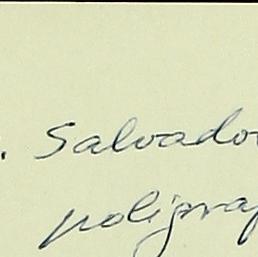 . Salvador
poligraf